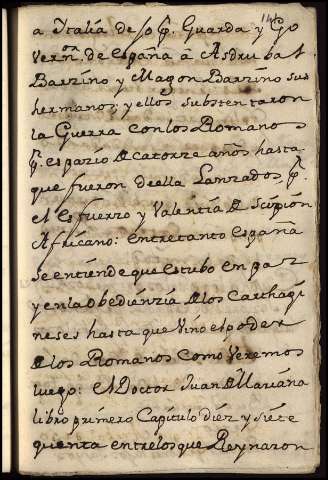 a Italia de so p. Guarda y Go
Vern.or de España â Asdrubal
Barzino y Magon Barzino sus
hermanos; y ellos substentaron
la Guerra con los Romanos
p. espazio de catorze años hasta
que fueron de ella Lanzados p.
el esfuerzo y Valentia de Scipion
Africano: entretanto España
se entiende que estubo en paz
y en la obedienzia de los Carthagi
neses hasta que vino el poder
de los Romanos como Veremos
luego: el Doctor Juan de Mariana
libro primero Capitulo diez y siete
quenta entre los que Reynaron